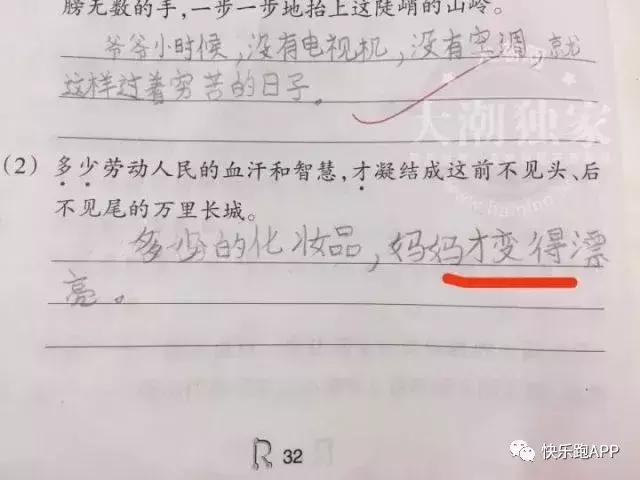 膀无数的手，一步一步地抬上这陡峭的山岭。
爷爷小时候，没有电视机，没有空调，就
这样过着穷苦的日子。
大潮独家
(2) 多少劳动人民的血汗和智慧，才凝结成这前不见头、后
不见尾的万里长城。
多少的化妆品，妈妈才变得漂
亮。
32
快乐跑APP